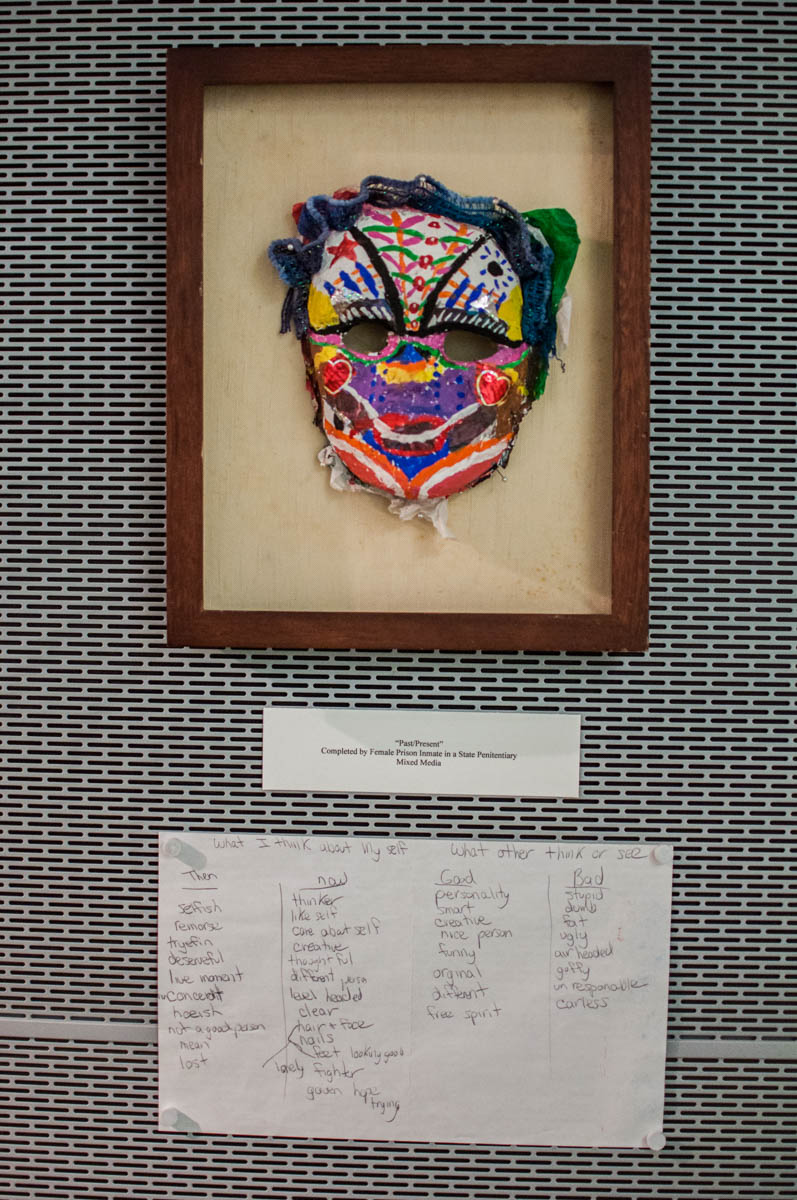 “Past/Present”
Completed by Female Prison Inmate in a State Penitentiary
Mixed Media
What I think about My self
What other think or see
Then
selfish
remorse
deserveful
live moment
hoeish
not a good person
mean
lost
now
thinker
like self
care about self
creative
thoughtful
different person
level headed
clear
hair + face
nails
feet looking good
lovely fighter
hope
trying
Good
personality
smart
creative
nice person
funny
orginal
different
free spirit
Bad
stupid
dumb
fat
ugly
air headed
goffy
un responable
carless